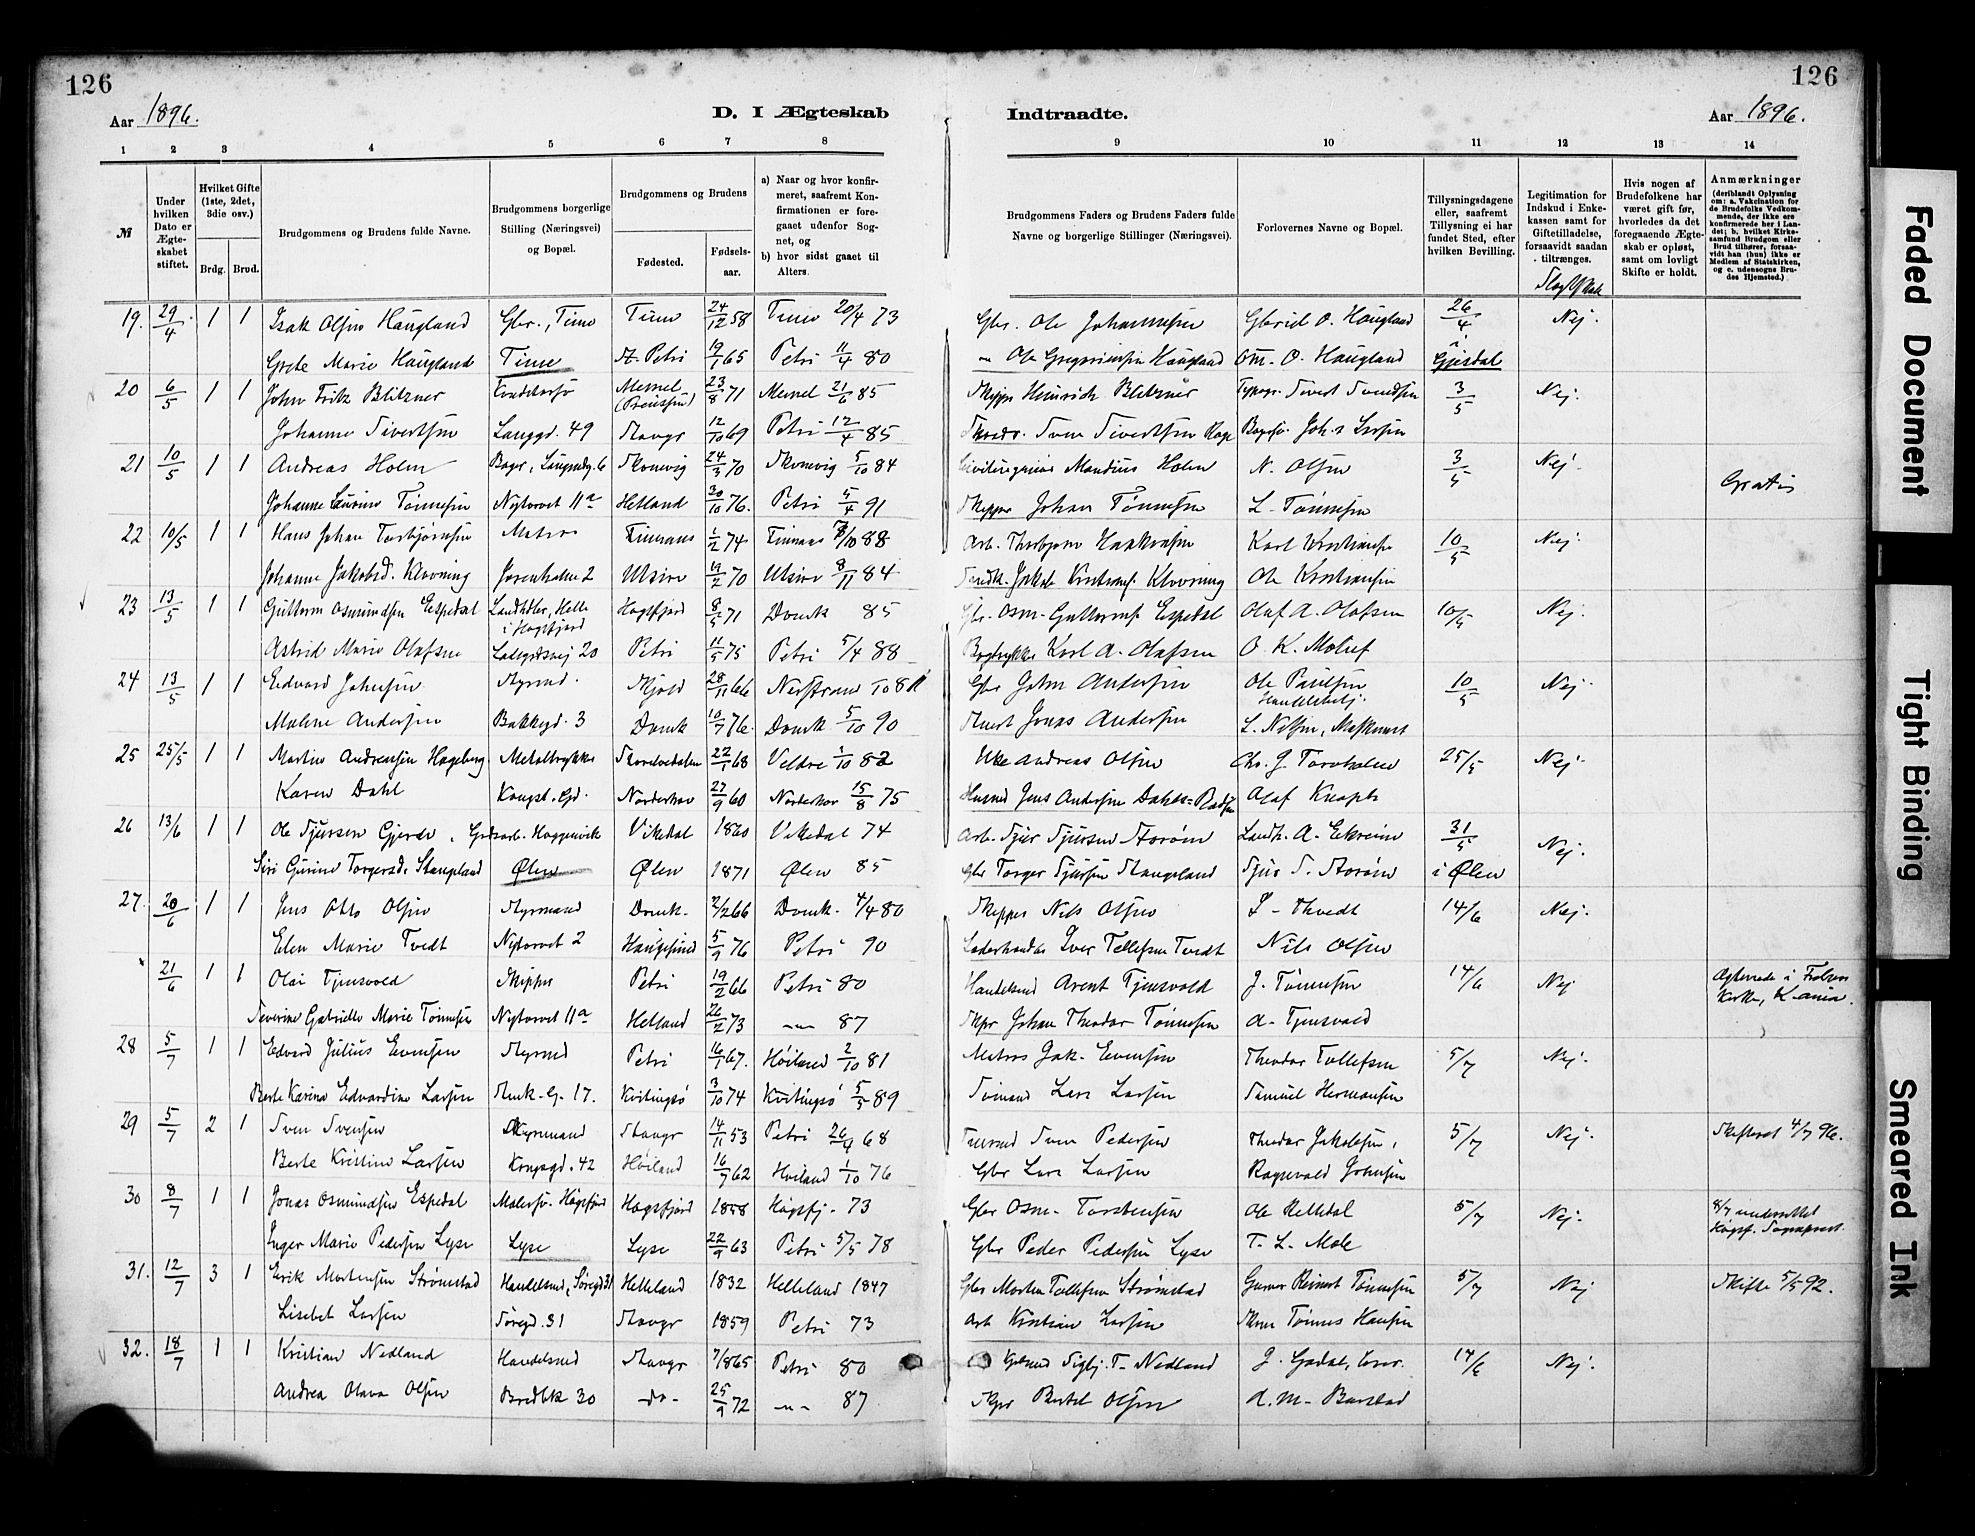 126
126
Aar 1896.
D. I Ægteskab
Indtraadte.
Aar 1896.
1 2 3 4 5 6 7 8 9 10 11 12 13 14
№
Under hvilken Dato er Ægteskabet stiftet.
Hvilket Gifte (1ste, 2det, 3die osv.)
Brdg. Brud.
Brudgommens og Brudens fulde Navne.
Brudgommens borgerlige Stilling (Næringsvei) og Bopæl.
Brudgommens og Brudens
Fødested.
Fødselsaar.
a) Naar og hvor konfirmeret, saafremt Konfirmationen er foregaaet udenfor Sognet, og
b) hvor sidst gaaet til Alters.
Brudgommens Faders og Brudens Faders fulde Navne og borgerlige Stillinger (Næringsvei).
Forlovernes Navne og Bopæl.
Tillysningsdagene eller, saafremt Tillysning ei har fundet Sted, efter hvilken Bevilling.
Legitimation for Indskud i Enkekassen samt for Giftetilladelse, forsaavidt saadan tiltrænges.
Hvis nogen af Brudefolkene har været gift før, hvorledes da det foregaaende Ægteskab er opløst, samt om lovligt Skifte er holdt.
Anmærkninger
(deriblandt Oplysning om: a. Vakcination for de Brudefolks Vedkommende, der ikke ere konfirmerede her i Landet; b. hvilket Kirkesamfund Brudgom eller Brud tilhører, forsaavidt han (hun) ikke er Medlem af Statskirken, og c. udensogns Brudes Hjemsted.)
19. 29/4 1 1 Isak Olsen Haugland Gbr., Time Time 24/12 58 Time 20/4 73 Gbr. Ole Johannesen Gabriel O. Haugland 26/4 Nej.
Grete Marie Haugland Time St. Petri 19/1 65 Petri 11/4 80 Ole Gregoriussen Haugland Om. O. Haugland i Gjesdal
20 6/5 1 1 John Fritz Blitzner Memel 23/8 71 Memel 21/6 85 Skipper Heinrich Blitzner Typogr. Sivert Svendsen 3/5 Nej.
Johanne Sivertsen Langgd. 49 Stavgr 12/10 69 Petri 12/4 85 Sven Sivertsen Joh.s Larsen
21 10/5 1 1 Andreas Holm Bager, 6 Skonevig 24/3 70 Skonevig 5/10 84 Mandius Holm N. Olsen 3/5 Nej. Gratis
Johanne Laurine Tønnesen Nytorvet 11a Hetland 30/10 76. Petri 5/4 91 Skipper Johan Tønnesen L. Tønnesen
22 10/5 1 1 Hans Johan Torbjørnsen Matros Finnaas 1/2 74 Finnaas 88 Arb. Thorbjørn Haakonsen Karl Kristiansen 10/5 Nej.
Johanne Jakobsd. Klovning Jorenholm 2 Utsire 19/2 70 Utsire 8/11 84 Jakob Klovning Ole Kristiansen
23 13/5 1 1 Guttorm Osmundsen Espedal Landhdler, Helle i Høgsfjord Høgsfjord 8/5 71 Domk 85 Gbr. Osm. Guttorms. Espedal Olaf A. Olafsen 10/5 Nej.
Astrid Marie Olafsen 20 Petri 11/5 75 Petri 5/4 88 Bogtrykker Karl A. Olafsen O. K. Molief
24 13/5 1 1 Edvard Johnsen Styrmd. Skjold 28/11 66 Nerstrand 10 81 Gbr John Andersen Ole Paulsen Handelsbetj. 10/5 Nej.
Malene Andersen Bakkegd. 3 Domk 10/7 76. Domk 5/10 90 Jonas Andersen L. Nilsen, Maskinmst
25 25/5 1 1 Martin Andreassen Hageberg Metaltrykker 22/1 68 Veldre 1/10 82 Andreas Olsen Chr. J. Torvholm 25/5 Nej.
Karen Dahl Kongsb. Gd. Norderhov 27/9 60 Norderhov 15/8 75 Husmd Jens Andersen Olaf Knaph
26 13/6 1 1 Ole Sjursen Gjerde, Vikedal 1860 Vikedal 74 Arb. Sjur Sjursen Storøm Landh. A. Ekreim 31/5 Nej.
Siri Gurine Torgersd. Stangeland Ølen Ølen 1871 Ølen 85 Gbr Torger Sjursen Stangeland Sjur S. Storøm i Ølen
27. 20/6 1 1 Jens Otto Olsen Styrmand Domk. 2/2 66 Domk. 4/4 80 Skipper Nils Olsen S. Thvedt 14/6 Nej.
Elen Marie Tvedt Nytorvet 2 Haugesund 5/9 76 Petri 90 Læderhandler Iver Tollefsen Tvedt Nils Olsen
21/6 1 1 Olai Tjensvold Skipper Petri 19/2 66 Petri 80 Handelsmd Arent Tjensvold J. Tønnesen 14/6 Nej Agterede i Frelsers Kirke, K.ania.
Severine Gabrielle Marie Tønnesen Nytorvet 11a Hetland 26/2 73 —"— 87 Skpr Johan Theodor Tønnesen A. Tjensvold
28 5/7 1 1 Edvard Julius Evensen Styrmd Petri 16/1 67. Høiland 2/10 81 Matros Jak. Evensen Theodor Tollefsen 5/7 Nej.
Berte Karine Edvardine Larsen Munk. G. 17. Kvitingsø 3/10 74 Kvitingsø 5/5 89 Sømand Lars Larsen Samuel Hermansen
29 5/7 2 1 Sven Svensen Styrmand Stavgr 14/11 53 Petri 26/4 68 Sven Pedersen Theodor Jakobsen, 5/7 Nej. Skifteret 4/7 96.
Berte Kristine Larsen Kongsgd. 42 Høiland 16/7 62 Høiland 1/10 76 Gbr Lars Larsen Ragnvald Johnsen
30 8/7 1 1 Jonas Osmundsen Espedal Malersv. Høgsfjord Høgsfjord 1858 Høgsfj. 73 Gbr Osm. Torstensen Ole Relledal 5/7 Nej. 8/7 underrettet Høgsf. Sogneprest.
Inger Marie Pedersen Lyse Lyse Lyse 22/9 63 Petri 5/5 78 Gbr Peder Pedersen Lyse T. L. Mole
31. 12/7 3 1 Erik Mortensen Strømstad Handelsmd, Søregd 31 Helleland 1832 Helleland 1847 Gbr Morten Tollefsen Strømstad Reinert Tønnesen 5/7 Nej Skifte 5/5 92.
Lisebet Larsen Søregd. 31 Stavgr 1859 Petri 73 Arb Kristian Larsen Tønnes Hansen
32. 18/7 1 1 Kristian Nedland Handelsmd Stavgr 7/8 65 Petri 80 Sigbj. T. Nedland J. Gadal, 14/6 Nej.
Andrea Olava Olsen Bredbk 30 do 25/9 72 —"— 87 Skpr Bertel Olsen A. M. Barstad
Faded Document
Tight Binding
Smeared Ink